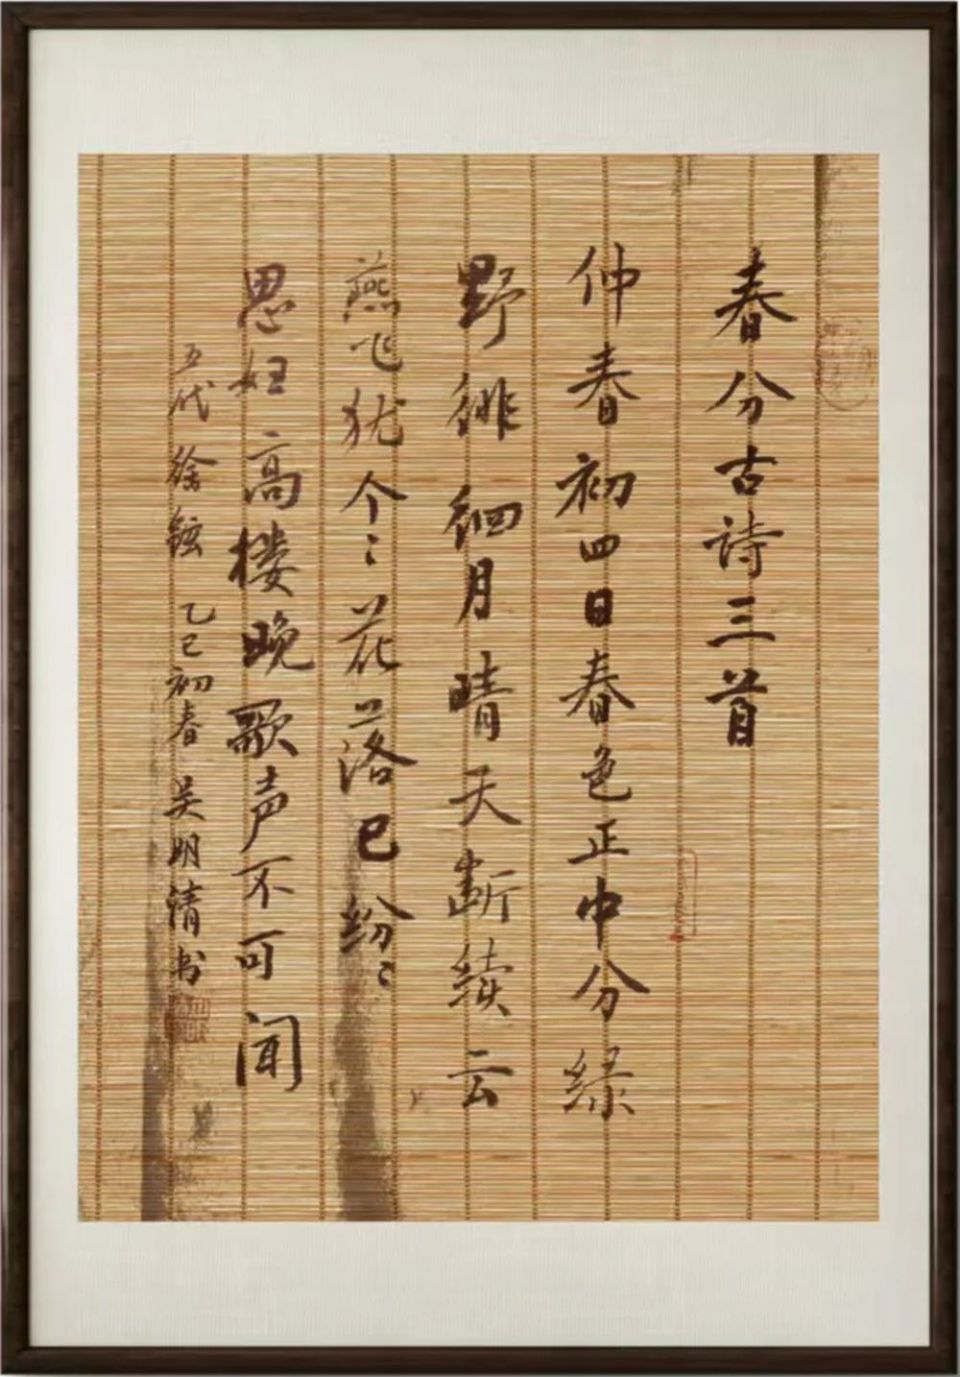 春分古诗三首
仲春初四日春色正中分绿
野徘徊月晴天断续云
燕飞犹个〻花落已纷〻
思妇高楼晚歌声不可闻
五代徐铉 乙巳初春 吴明清书